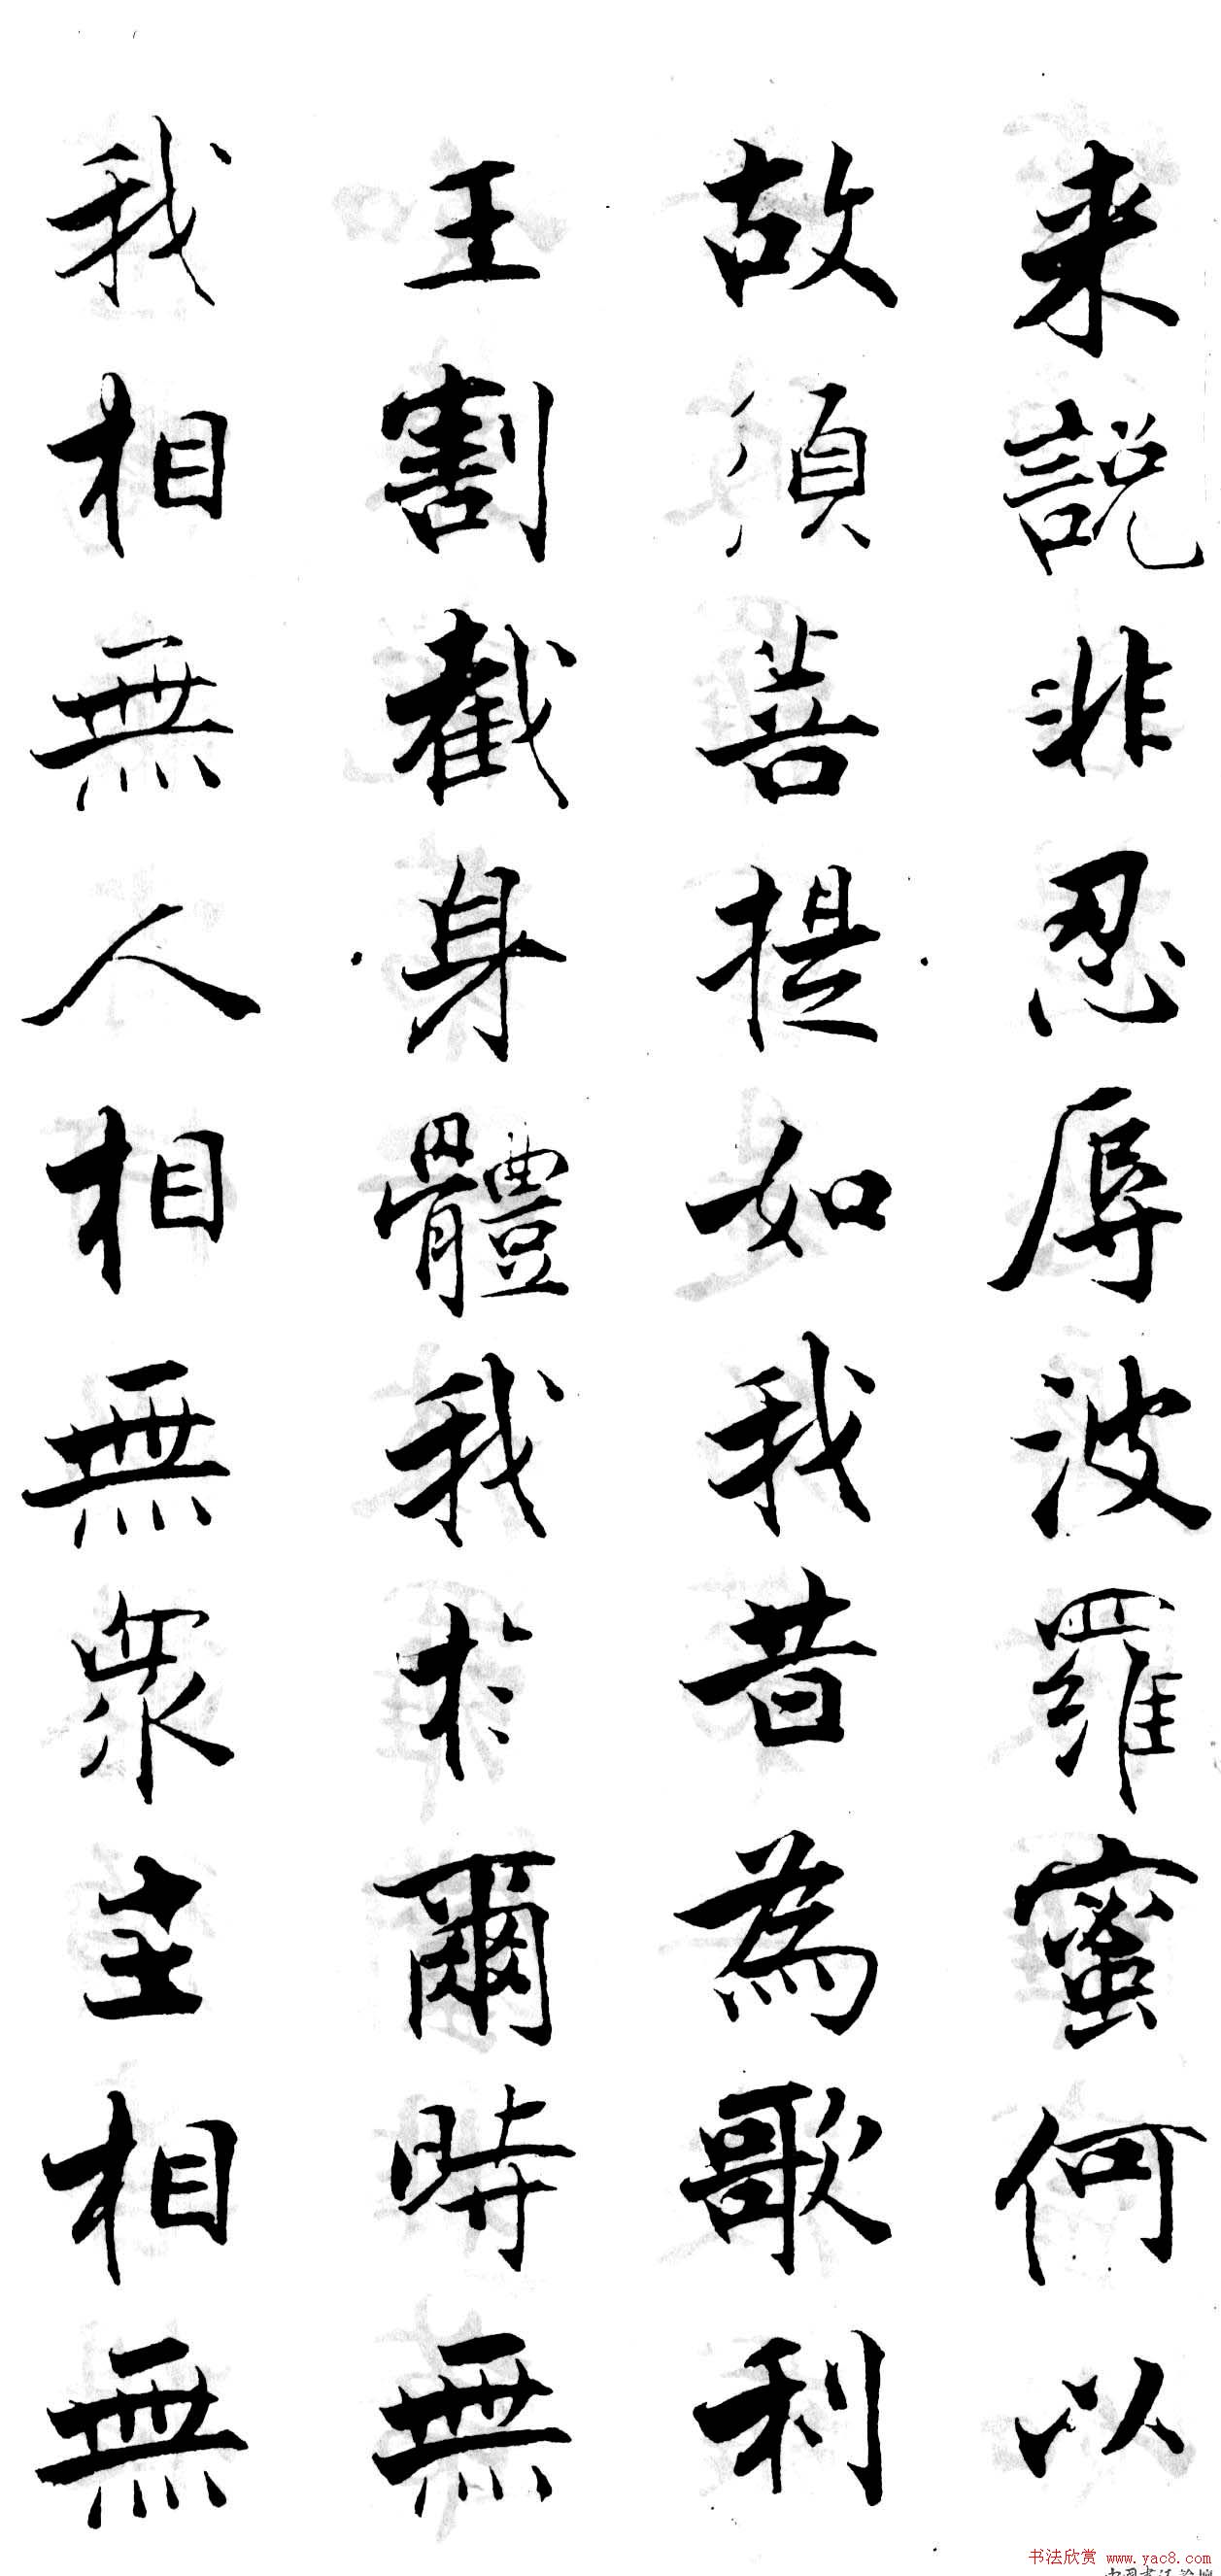 来説非忍辱波羅蜜何以
故須菩提如我昔為歌利
王割截身體我於爾時無
我相無人相無衆生相無
书法欣赏 www.yac8.com